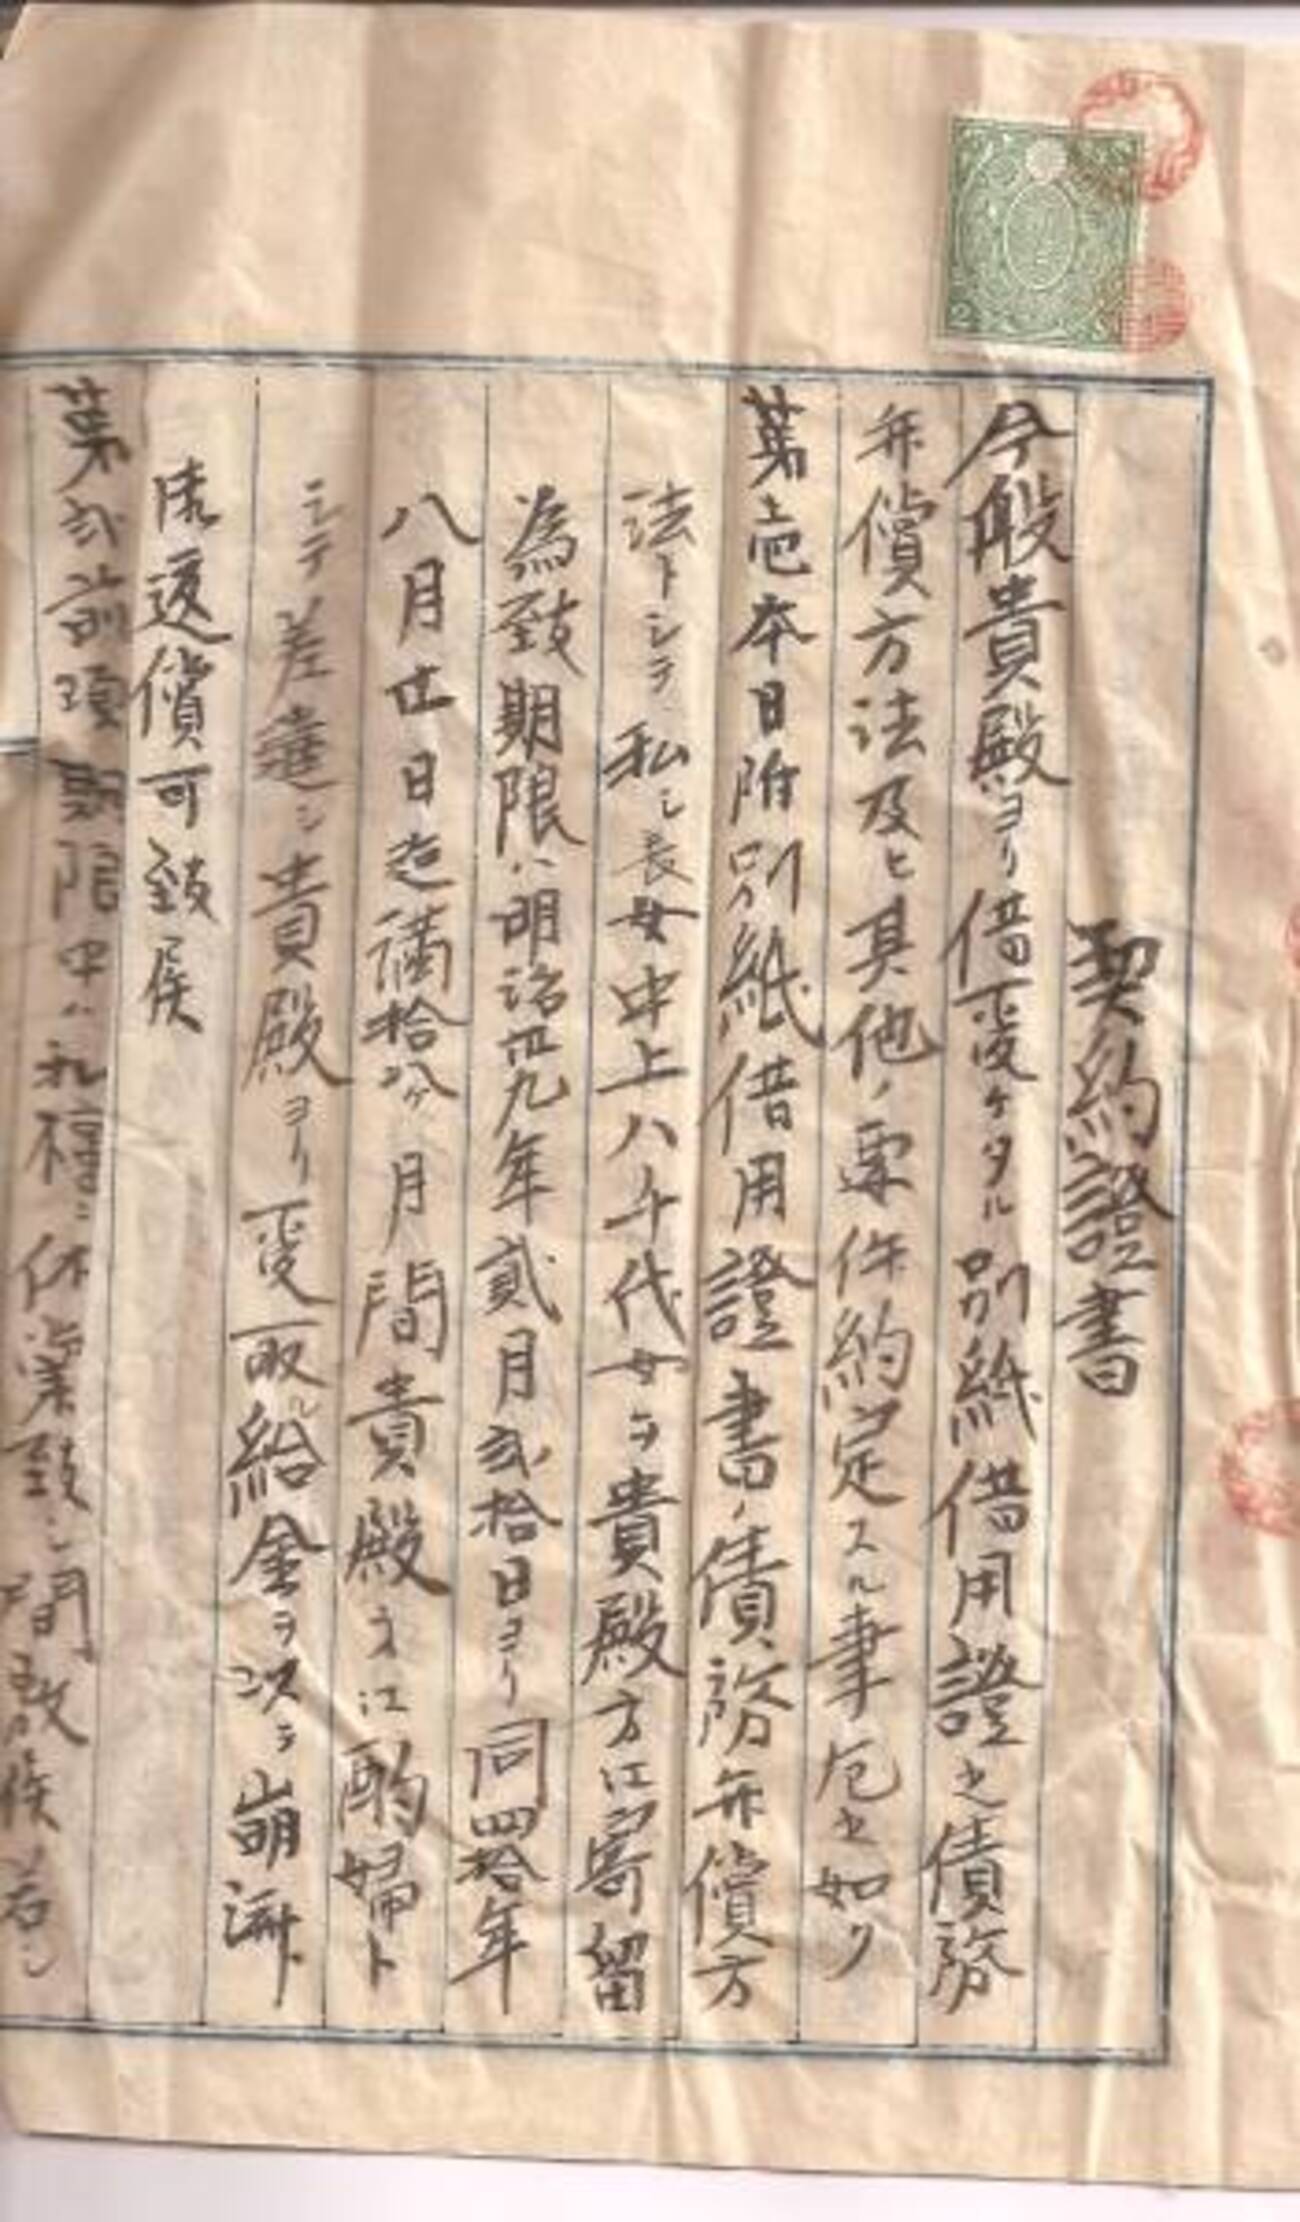 契約證書
今般貴殿ヨリ借受ケタル別紙借用證之債務
弁償方法及ヒ其他ノ要件約定スル事左之如ク
第壱本日附別紙借用證書ノ債務弁償方
法トシテ私シ長女中上八千代女ヲ貴殿方江寄留
為致期限ハ明治四九年貳月弐拾日ヨリ同四拾年
八月廿日迄満拾八ヶ月間貴殿方江酌婦ト
シテ差遣シ貴殿ヨリ受取ル給金ヲ以テ崩済
返償可致候
第弐前項期限中ハ休業致シ間敷候若シ